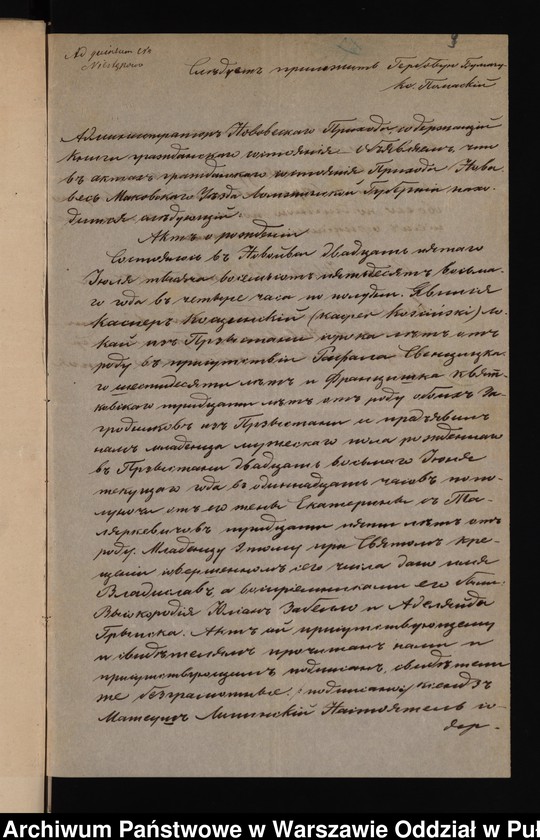 Слѣдуетъ приложить Гербовую Бумагу
Администраторъ Нововесскаго Прихода, содержащій
книги гражданскаго состоянія объявляетъ, что
въ актахъ гражданскаго состоянія Прихода Нова
весь Маковскаго Уѣзда Ломжинской Губерніи нахо-
дится слѣдующій:
Актъ о рожденіи
Состоялось въ Новойвси двадцать пятаго
Іюля тысяча восемьсотъ пятьдесятъ восьма-
го года въ четыре часа по полудни. Явился
Касперъ Косцинскій (Kacper Kościński) ло-
кай изъ Прževстани сорока лѣтъ отъ
роду въ присутствіи Рафала Свенцицка-
го шестидесяти лѣтъ и Францишка Квят-
ковскаго тридцати лѣтъ отъ роду обоихъ За-
гродниковъ изъ Пржистани и предъявилъ
намъ младенца мужескаго пола рожденнаго
въ Пржистани двадцать восьмаго Іюня
текущаго года въ одиннадцать часовъ попо-
луночи отъ его жены Екатерины съ
тридцати пяти лѣтъ отъ
роду. Младенцу этому при Святомъ Кре-
щеніи совершенномъ сего числа дано имя
Владиславъ, а воспріемниками его были
Высокородія Юліанъ Забѣлло и Аделяйда
Грынска. Актъ сей присутствующему
и свидѣтелямъ прочитанъ нами и
присутствующимъ подписанъ, свидѣтели
же безграмотные. подписано: ксендзъ
Матеушъ Липинскій Настоятель со-
дер-
Archiwum Państwowe w Warszawie Oddział w Puł